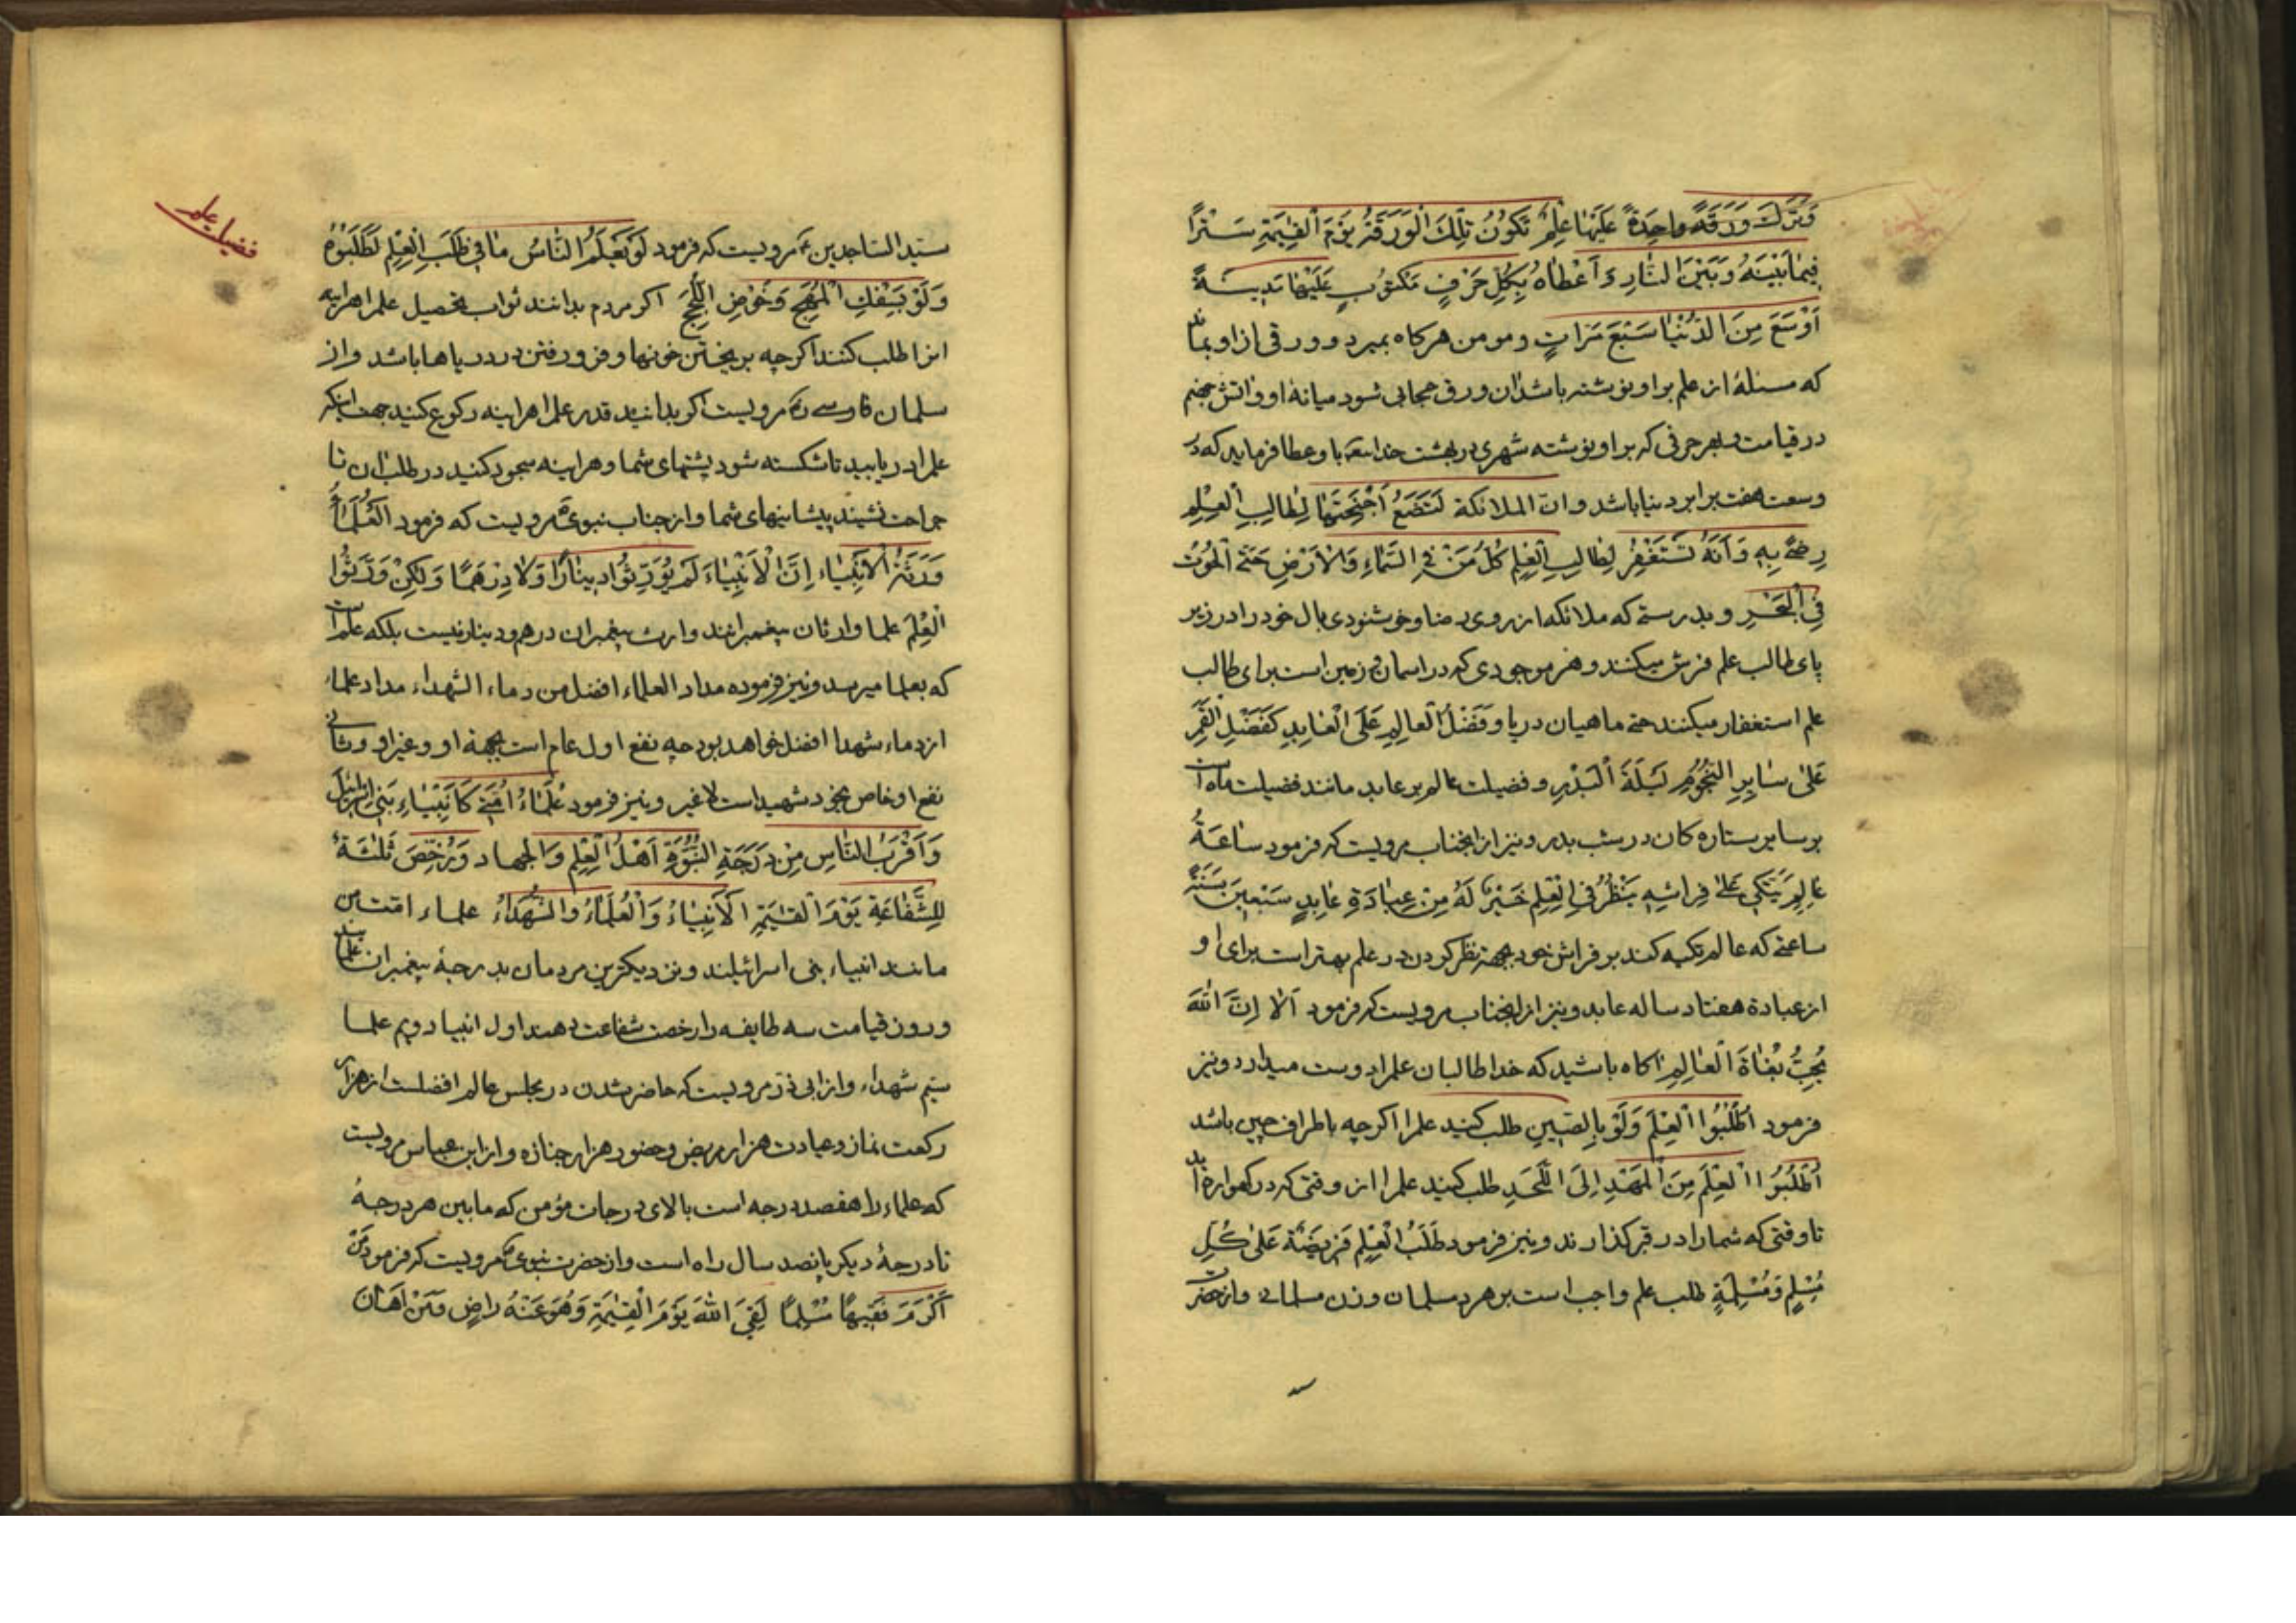 وَتَرَكَ وَرَقَةً واحِدَةً عَلَيْهَا عِلْمٌ تَكُونُ تِلْكَ الْوَرَقَةُ يَوْمَ الْقِيٰمَةِ سَتْراً
فِيمَا بَيْنَهُ وَبَيْنَ النّارِ وَ اَعْطاهُ بِكُلِّ حَرْفٍ مَكْتُوبٍ عَلَيْهَا مَدِينَةً
اَوْسَعَ مِنَ الدُّنْيَا سَبْعَ مَرّاتٍ و مومن هركاه بميرد و ورقى از او بماند
كه مسئلهٔ از علم بر او نوشته باشد ان ورق حجابى شود ميانهٔ او و اتش جهنم
در قيامت و بهر حرفى كه بر او نوشته شهرى در بهشت خدايتعه باو عطا فرمايد كه در
وسعت هفت برابر دنيا باشد و انّ الملائكة لَتَضَعُ اَجْنِحَتَهَا لِطالِبِ الْعِلْمِ
رِضىً بِهِ وَ اَنَّهُ تَسْتَغْفِرُ لِطالِبِ الْعِلْمِ كُلُّ مَنْ فِي السَّمٰاءِ وَالْاَرْضِ حَتّى الْحُوتُ
فِي الْبَحْرِ و بدرستى كه ملائكه از روى رضا و خوشنودى بال خود را در زير
پاى طالب علم فرش ميكنند و هر موجودى كه در اسمان و زمين است براى طالب
علم استغفار ميكنند حتى ماهيان دريا و فَضْلُ الْعالِمِ عَلَى الْعابِدِ كَفَضْلِ الْقَمَرِ
عَلىٰ سٰايِرِ النُّجُومِ لَيْلَةَ الْبَدْرِ و فضيلت عالم بر عابد مانند فضيلت ماه است
بر ساير ستاره كان در شب بدر و نيز از انجناب مرويست كه فرمود سٰاعَةُ
عٰالِمٍ يَتَّكِي عَلىٰ فِراشِهِ يَنْظُرُ فِي الْعِلْمِ خَيْرٌ لَهُ مِنْ عِبادَةِ عٰابِدٍ سَبْعِينَ سَنَةً
ساعتى كه عالم تكيه كند بر فراش خود بجهة نظر كردن در علم بهتر است براى او
از عبادة هفتاد ساله عابد و نيز از انجناب مرويست كه فرمود اَلا اِنَّ اللّٰهَ
يُحِبُّ بُغٰاةَ الْعٰالِمِ اكاه باشيد كه خدا طالبان علم را دوست ميدارد و نيز
فرمود اُطْلُبُوا الْعِلْمَ وَلَوْ بِالصّينِ طلب كنيد علم را اكرچه باطراف چين باشد
اُطْلُبُوا الْعِلْمَ مِنَ الْمَهْدِ اِلَى اللَّحَدِ طلب كنيد علم را از وقتى كه در كهواره ايد
تا وقتى كه شما را در قبر كذارند و نيز فرمود طَلَبُ الْعِلْمِ فَرِيضَةٌ عَلىٰ كُلِّ
مُسْلِمٍ وَمُسْلِمَةٍ طلب علم واجب است بر هر مرد مسلمان و زن مسلمان و از حضرت
فضيلت علم
سيّد السّاجدين مرويست كه فرمود لَوْ يَعْلَمُ النّاسُ مٰا فِي طَلَبِ الْعِلْمِ لَطَلَبُوهُ
وَلَوْ بِسَفْكِ الْمُهَجِ وَخَوْضِ اللُّجَجِ اكر مردم بدانند ثواب تحصيل علم را هراينه
انرا طلب كنند اكرچه بريختن خونها و فرو رفتن در درياها باشد و از
سلمان فارسى مرويست اكر بدانيد قدر علم را هراينه ركوع كنيد جهت اينكه
علم را دريابيد تا شكسته شود پشتهاى شما و هراينه سجود كنيد در طلب ان تا
جراحت نشيند پيشانيهاى شما و از جناب نبوى مرويست كه فرمود الْعُلَمٰاءُ
وَرَثَةُ الْاَنْبِيٰاءِ اِنَّ الْاَنْبِيٰاءَ لَمْ يُوَرِّثُوا دِينٰارًا وَلا دِرْهَمًا وَلكِنْ وَرَّثُوا
الْعِلْمَ علما وارثان پيغمبرانند و ارث پيغمبران درهم و دينار نيست بلكه علم است
كه بعلما ميرسد و نيز فرموده مداد العلماء افضل من دماء الشهداء مداد علماء
از دماء شهدا افضل خواهد بود چه نفع اول عام است بجهة او و غير او و ثانى
نفع او خاص بخود شهيد است لا غير و نيز فرمود عُلَمٰاءُ اُمَّتِي كَاَنْبِيٰاءِ بَنِي اِسْرائِيلَ
وَ اَقْرَبُ النّاسِ مِنْ دَرَجَةِ النُّبُوَّةِ اَهْلُ الْعِلْمِ وَالْجِهٰاد وَيُرَخَّصُ ثَلٰثَةٌ
لِلشَّفٰاعَةِ يَوْمَ الْقِيٰمَةِ الْاَنْبِيٰاءُ وَالْعُلَمٰاءُ وَالشُّهَدٰاءُ علماء امّت من
مانند انبياء بنى اسرائيلند و نزديكترين مردمان بدرجهٔ پيغمبران علما
و روز قيامت سه طايفه را رخصت شفاعت دهند اول انبيا دويم علما
سيّم شهداء و از ابى ذر مرويست كه حاضر شدن در مجلس عالم افضلست از هزار
ركعت نماز و عيادت هزار مريض و حضور هزار جنازه و از ابن عباس مرويست
كه علماء را هفصد درجه است بالاى درجات مؤمن كه ما بين هر درجهٔ
تا درجهٔ ديكر پانصد سال راه است و از حضرت نبوى مرويست كه فرمود مَنْ
اَكْرَمَ فَقِيهًا مُسْلِمًا لَقِيَ اللّٰهَ يَوْمَ الْقِيٰمَةِ وَهُوَ عَنْهُ راضٍ وَمَنْ اَهٰانَ